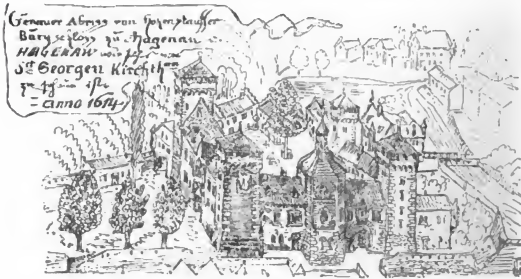 Genauer Abriss von Hohenstauffer
Burgschloss zu Hagenau
HAGENAW wie
St Georgen Kirch
zu
= anno 1614